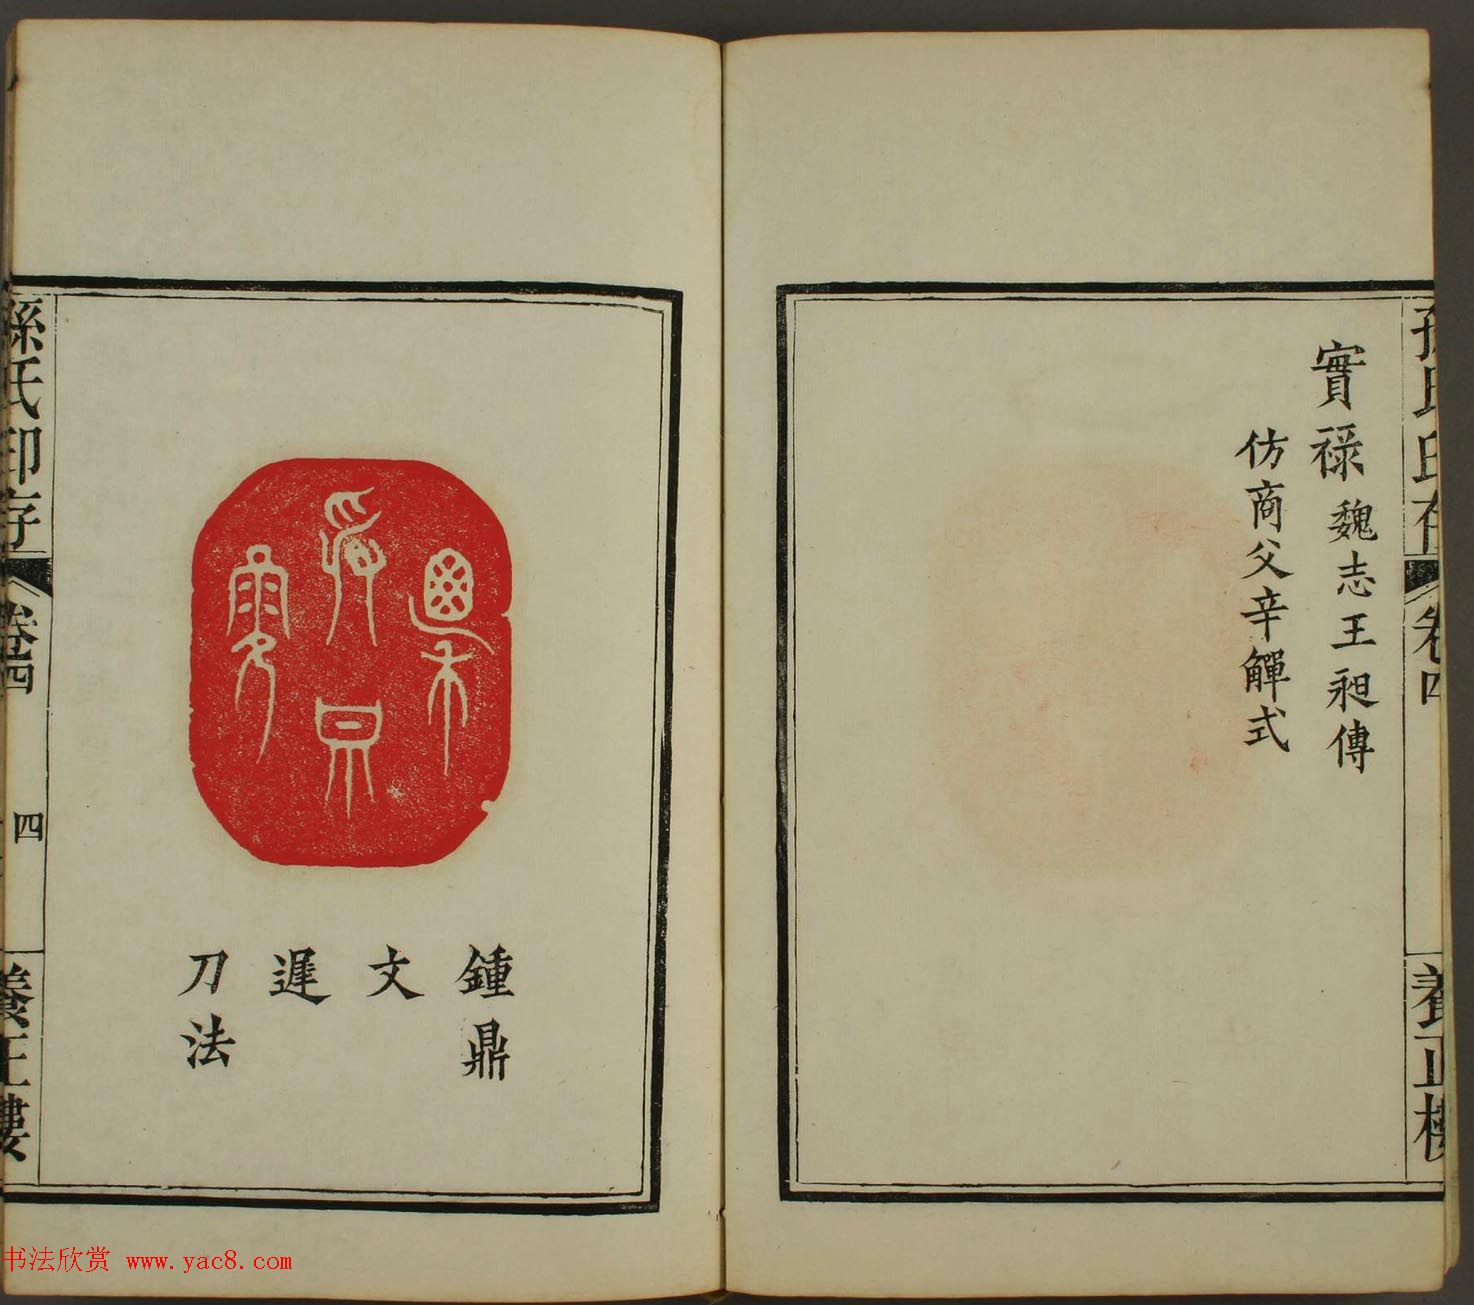 實祿魏志王昶傳
仿商父辛觶式
孫氏印存
卷四
養正樓
鍾鼎
文
遲
刀法
孫氏印存
卷四
四
養正樓
书法欣赏 www.yac8.com